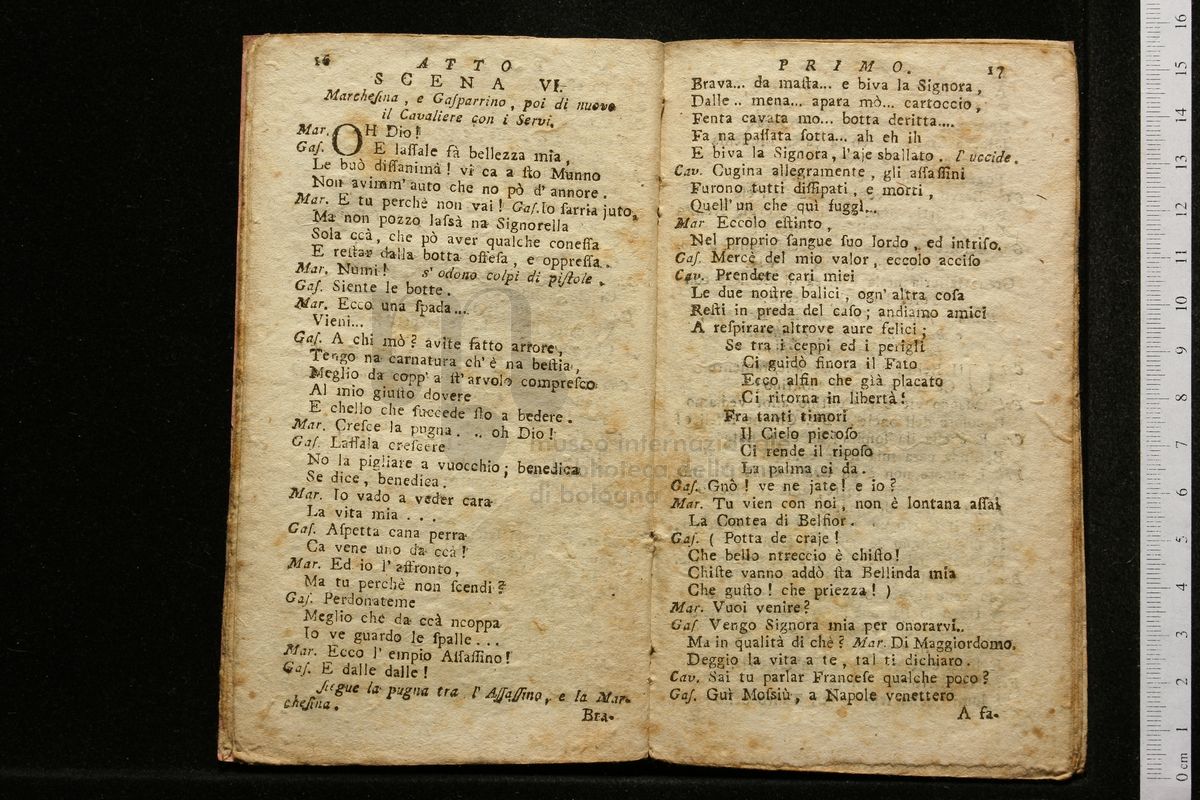 16
ATTO
SCENA VI.
Marchesina, e Gasparrino, poi di nuovo
il Cavaliere con i Servi.
Mar. OH Dio!
Gaſ. E laſſale fà bellezza mia,
Le buò diſſanimà! vi ca a ſto Munno
Non avimm' auto che no pò d' annore.
Mar. E tu perchè non vai! Gaſ. Io ſarria juto,
Ma non pozzo laſsà na Signorella
Sola ccà, che pò aver qualche coneſſa
E reſtar dalla botta offeſa, e oppreſſa.
Mar. Numi! s' odono colpi di piſtole.
Gaſ. Siente le botte.
Mar. Ecco una ſpada....
Vieni...
Gaſ. A chi mò? avite fatto arrore,
Tengo na carnatura ch' è na beſtia,
Meglio da copp' a ſt' arvolo compreſco
Al mio giuſto dovere
E chello che ſuccede ſto a bedere.
Mar. Creſce la pugna. .. oh Dio!
Gaſ. Laſſala creſcere
No la pigliare a vuocchio; benedica
Se dice, benedica.
Mar. Io vado a veder cara
La vita mia ...
Gaſ. Aſpetta cana perra
Ca vene uno da ccà!
Mar. Ed io l'affronto,
Ma tu perchè non ſcendi?
Gaſ. Perdonateme
Meglio che da ccà ncoppa
Io ve guardo le ſpalle....
Mar. Ecco l' empio Aſſaſſino!
Gaſ. E dalle dalle!
Siegue la pugna tra l' Aſſaſſino, e la Mar-
cheſina.
Bra-
PRIMO.
17
Brava... da maſta... e biva la Signora,
Dalle.. mena... apara mò... cartoccio,
Fenta cavata mo... botta deritta....
Fa na paſſata ſotta... ah eh ih
E biva la Signora, l'aje sballato. l' uccide.
Cav. Cugina allegramente, gli aſſaſſini
Furono tutti diſſipati, e morti,
Quell' un che quì fuggì...
Mar Eccolo eſtinto,
Nel proprio ſangue ſuo lordo, ed intriſo.
Gaſ. Mercè del mio valor, eccolo acciſo
Cav. Prendete cari miei
Le due noſtre balici, ogn' altra coſa
Reſti in preda del caſo; andiamo amici
A reſpirare altrove aure felici;
Se tra i ceppi ed i perigli
Ci guidò finora il Fato
Ecco alfin che già placato
Ci ritorna in libertà!
Fra tanti timori
Il Cielo pietoſo
Ci rende il ripoſo
La palma ci da.
Gaſ. Gnò! ve ne jate! e io?
Mar. Tu vien con noi, non è lontana aſſai
La Contea di Belfior.
Gaſ. ( Potta de craje!
Che bello ntreccio è chiſto!
Chiſte vanno addò ſta Bellinda mia
Che guſto! che priezza! )
Mar. Vuoi venire?
Gaſ Vengo Signora mia per onorarvi..
Ma in qualità di chè? Mar. Di Maggiordomo.
Deggio la vita a te, tal ti dichiaro.
Cav. Sai tu parlar Franceſe qualche poco?
Gaſ. Guì Moſsiù, a Napole venettero
A fa-
museo internazionale
e biblioteca della musica
di bologna
0 cm 1 2 3 4 5 6 7 8 9 10 11 12 13 14 15 16